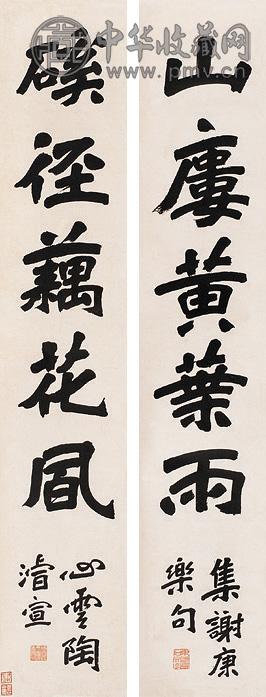 中华收藏网
www.pmv.cn
山廔黃葉雨
集謝康
樂句
磎徑藕花風
心雲陶
濬宣